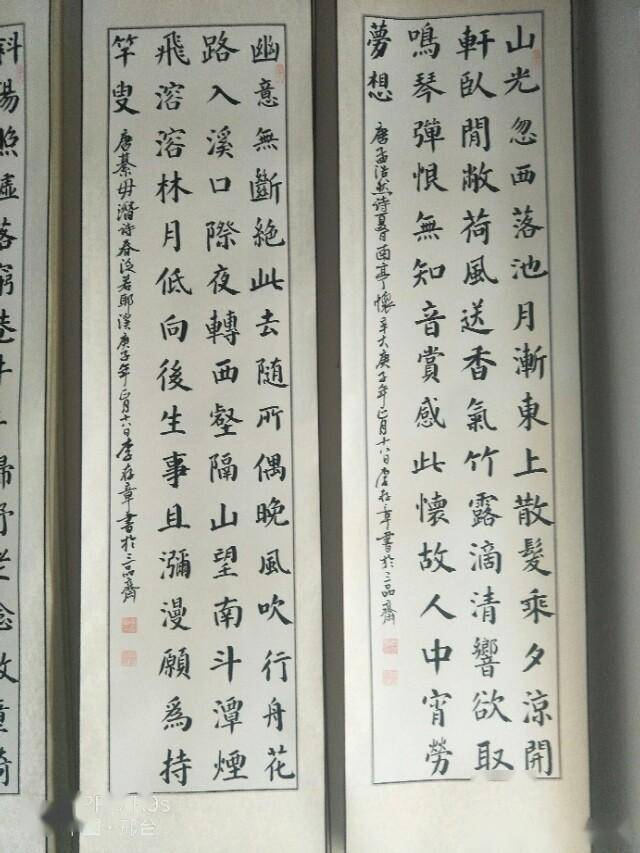 山光忽西落池月漸東上散髮乘夕涼開
軒臥閒敝荷風送香氣竹露滴清響欲取
鳴琴彈恨無知音賞感此懷故人中宵勞
夢想
唐孟浩然詩夏日南亭懷辛大庚子年正月十八日李存章書於三品齋
幽意無斷絕此去隨所偶晚風吹行舟花
路入溪口際夜轉西壑隔山望南斗潭煙
飛溶溶林月低向後生事且瀰漫願為持
竿叟
唐綦毋潛詩春泛若耶溪庚子年正月十六日李存章書於三品齋
斜陽照墟落窮巷牛羊歸野老念牧童倚
邢台